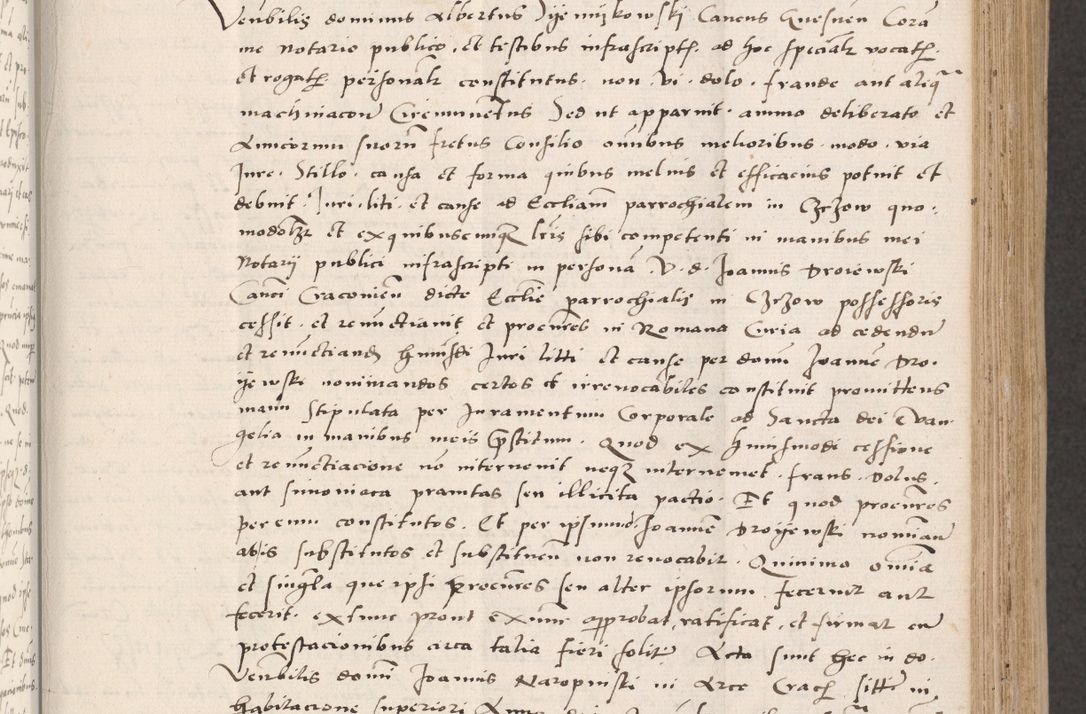 Venbilis dominus Albertus Cancus Gnesnen Coram
me Notario publico, et testibus infrascriptis ad hoc specialr vocatis
et rogatis personalr constitutus. non vi. dolo. fraude aut aliqua
machinacone Circumuentus Sed ut apparuit. animo deliberato et
Amicorum suorum fretus Consilio omnibus melioribus. modo. via
Jure. Stillo. causa et forma quibus melius et efficacius potuit et
debuit. Juri. liti. et cause ad Eccliam parrochialem in Czchow quo-
modolzt et ex quibuscumque lris sibi competenti in manibus mei
Notarij publici infrascripti in personam V. d. Joannis Droiewski
Canci Craconien dicte Ecclie parrochialis in Czchow possessoris
cessit. et renunctiauit et procures in Romana Curia ad cedendum
et renunctiand huiusdi Juri litti et cause per donum Joannem Dro-
ijewski nominandos certos et irreuocabiles constituit promittens
manu Stipulata per Juramentum Corporale ad Sancta dei Evan-
gelia in manibus meis prestitum. Quod ex huiusmodi cessione
et renunctiacione non interuenit neque interueniet. fraus. dolus.
aut simoniaca prauitas seu illicita pactio. Et quod procures
per eum constitutos. Et per ipsum d. Joannem Droijewski nominan
substitutos et substituen non reuocabit. Quinimo omnia
et singla que ipsi procures seu alter ipsorum fecerint aut
fecerit. ex tunc prout ex nunc approbat, ratificat, et firmat cum
protestacionibus circa talia fieri solitis Acta sunt hec in do-
Venbilis domni Joannis Naropinski in Arce Crach sitte in
habitacione superiori